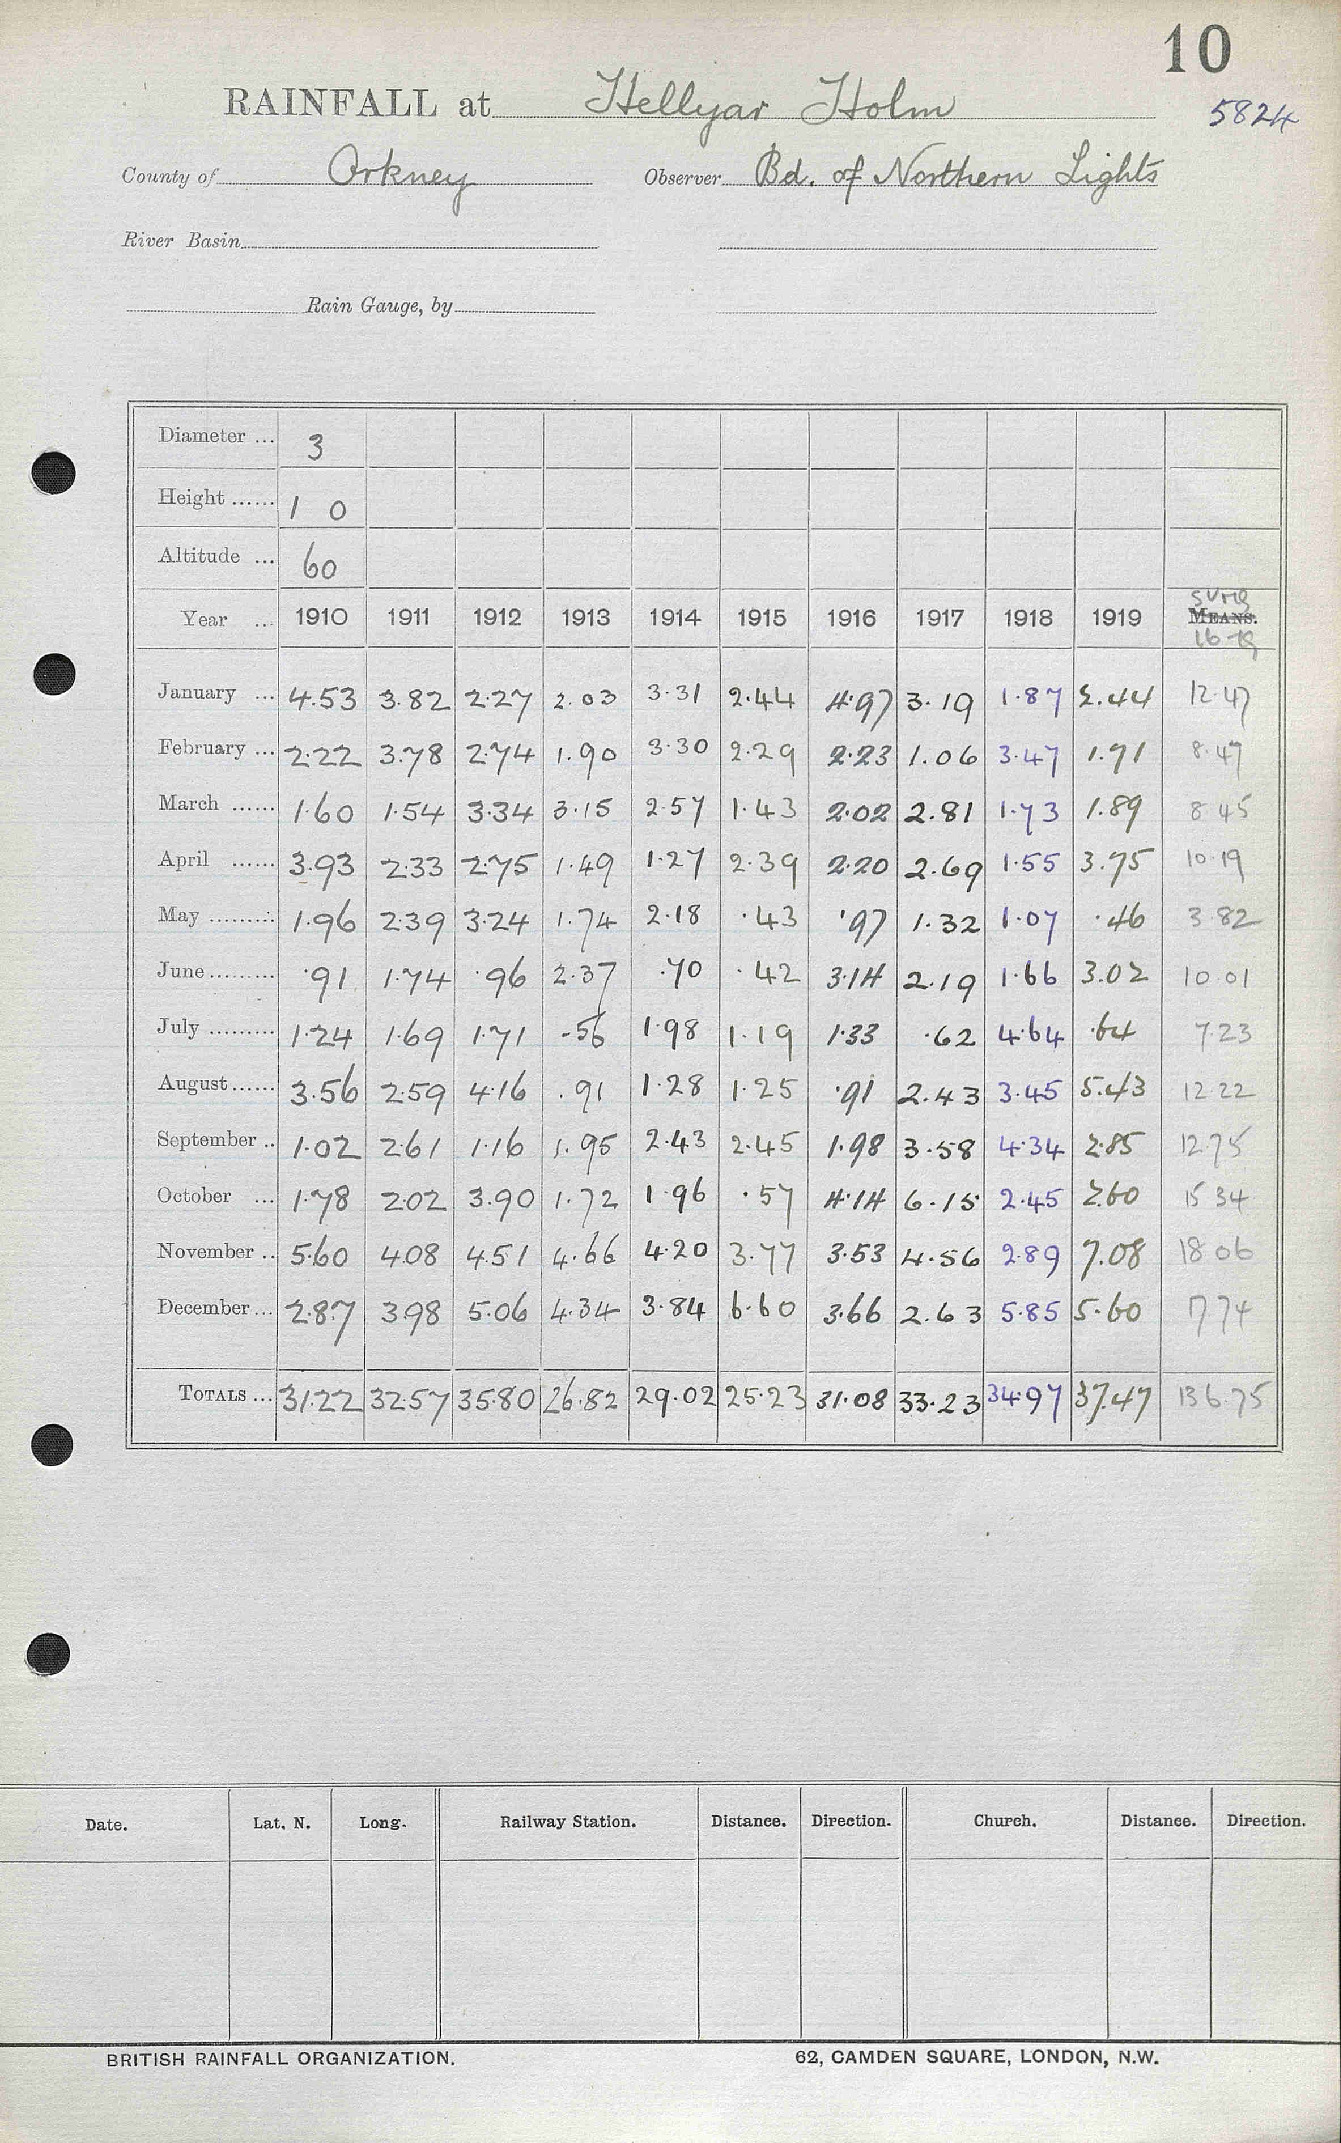 10
RAINFALL at Hellyar Holm 5824
County of Orkney Observer Bd. of Northern Lights
River Basin
Rain Gauge, by
Diameter ... 3
Height ...... 1 0
Altitude ... 60
Year ... 1910 1911 1912 1913 1914 1915 1916 1917 1918 1919 sums MEANS. 16-19
January ... 4.53 3.82 2.27 2.03 3.31 2.44 4.97 3.19 1.87 2.44 12.47
February ... 2.22 3.78 2.74 1.90 3.30 2.29 2.23 1.06 3.47 1.71 8.47
March ...... 1.60 1.54 3.34 3.15 2.57 1.43 2.02 2.81 1.73 1.89 8.45
April ...... 3.93 2.33 2.75 1.49 1.27 2.39 2.20 2.69 1.55 3.75 10.19
May ......... 1.96 2.39 3.24 1.74 2.18 .43 .97 1.32 1.07 .46 3.82
June ......... .91 1.74 .96 2.37 .70 .42 3.14 2.19 1.66 3.02 10 01
July ......... 1.24 1.69 1.71 .56 1.98 1.19 1.33 .62 4.64 .64 7.23
August ...... 3.56 2.59 4.16 .91 1.28 1.25 .91 2.43 3.45 5.43 12.22
September .. 1.02 2.61 1.16 1.95 2.43 2.45 1.98 3.58 4.34 2.85 12.75
October ... 1.78 2.02 3.90 1.72 1.96 .57 4.14 6.15 2.45 2.60 15 34
November .. 5.60 4.08 4.51 4.66 4.20 3.77 3.53 4.56 2.89 7.08 18 06
December ... 2.87 3.98 5.06 4.34 3.84 6.60 3.66 2.63 5.85 5.60 17 74
TOTALS ... 31.22 32.57 35.80 26.82 29.02 25.23 31.08 33.23 34.97 37.47 136.75
Date. Lat. N. Long. Railway Station. Distance. Direction. Church. Distance. Direction.
BRITISH RAINFALL ORGANIZATION. 62, CAMDEN SQUARE, LONDON, N.W.